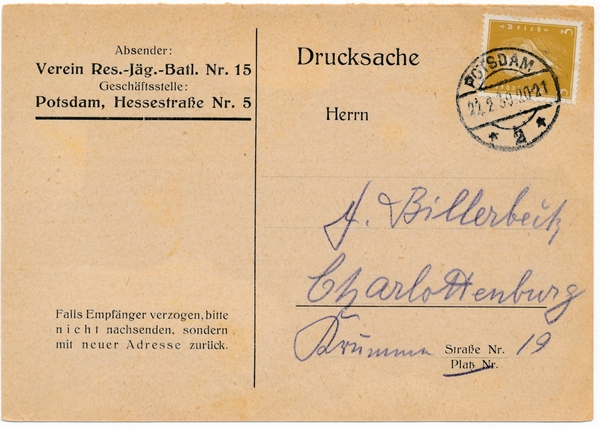 Absender:
Verein Res.-Jäg.-Batl. Nr. 15
Geschäftsstelle:
Potsdam, Hessestraße Nr. 5
Drucksache
Herrn
POTSDAM
22.2.30.20-21
* 2 *
3
3
A. Billerbeck
Charlottenburg
Krumme Straße Nr. 19
Platz Nr.
Falls Empfänger verzogen, bitte
nicht nachsenden, sondern
mit neuer Adresse zurück.